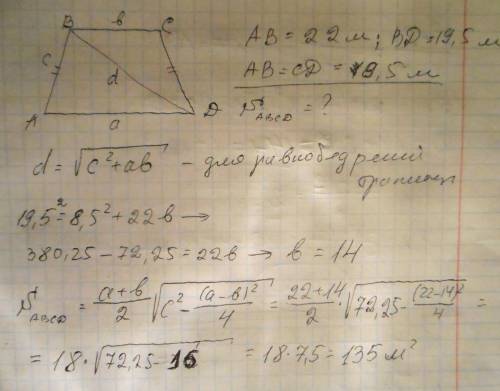 B b C
AB = 22м; BD = 19,5 м
c d
AB = CD = 8,5 м
A a D
S ABCD = ?
d = √(c² + ab) - для равнобедренной
трапеции
19,5² = 8,5² + 22b →
380,25 - 72,25 = 22b → b = 14
S ABCD = (a+b)/2 √(c² - (a-b)²/4) = (22+14)/2 · √(72,25 - (22-14)²/4) =
= 18 · √(72,25 - 16) = 18 · 7,5 = 135 м²